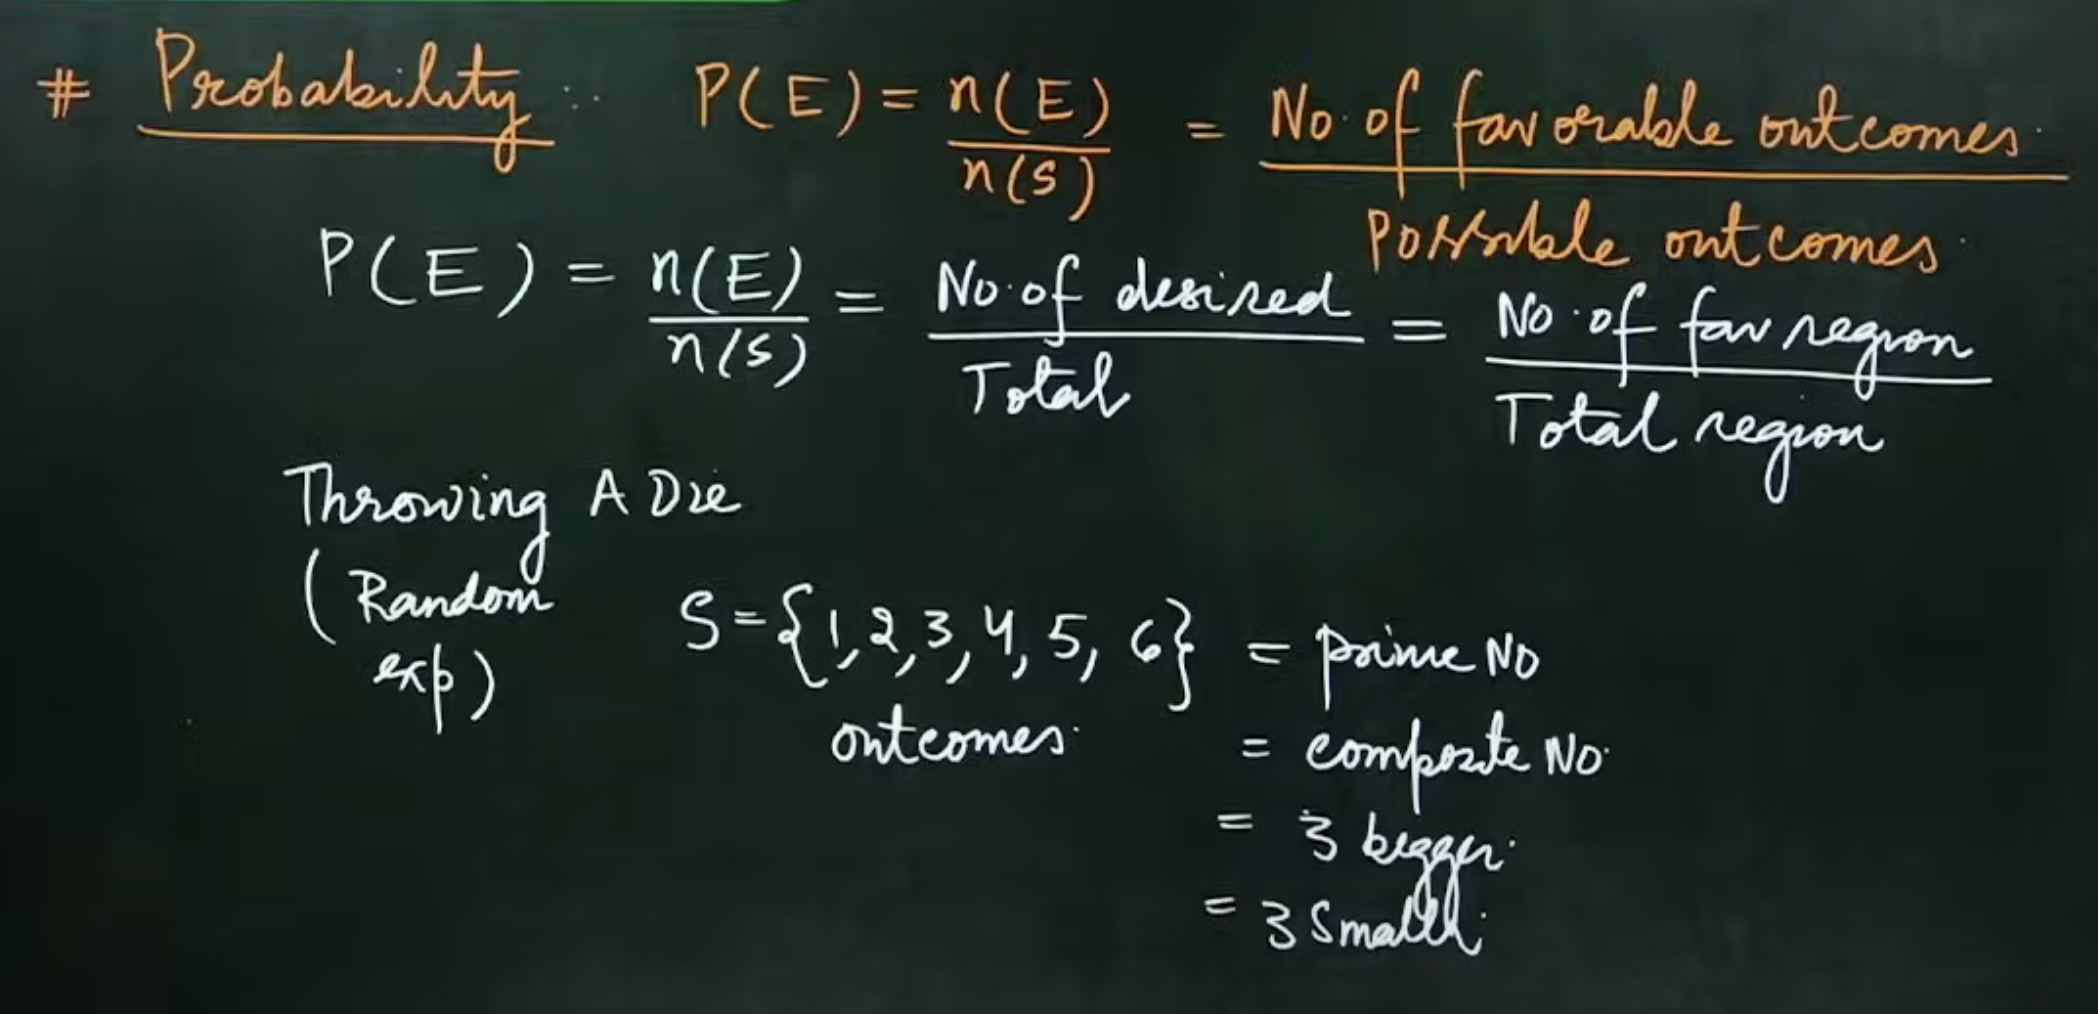 # Probability : P(E) = n(E)/n(S) = No. of favorable outcomes / Possible outcomes
P(E) = n(E)/n(S) = No. of desired / Total = No. of fav region / Total region
Throwing A Die
(Random exp)
S = {1, 2, 3, 4, 5, 6} = prime No
outcomes
= composite No.
= 3 bigger
= 3 Small